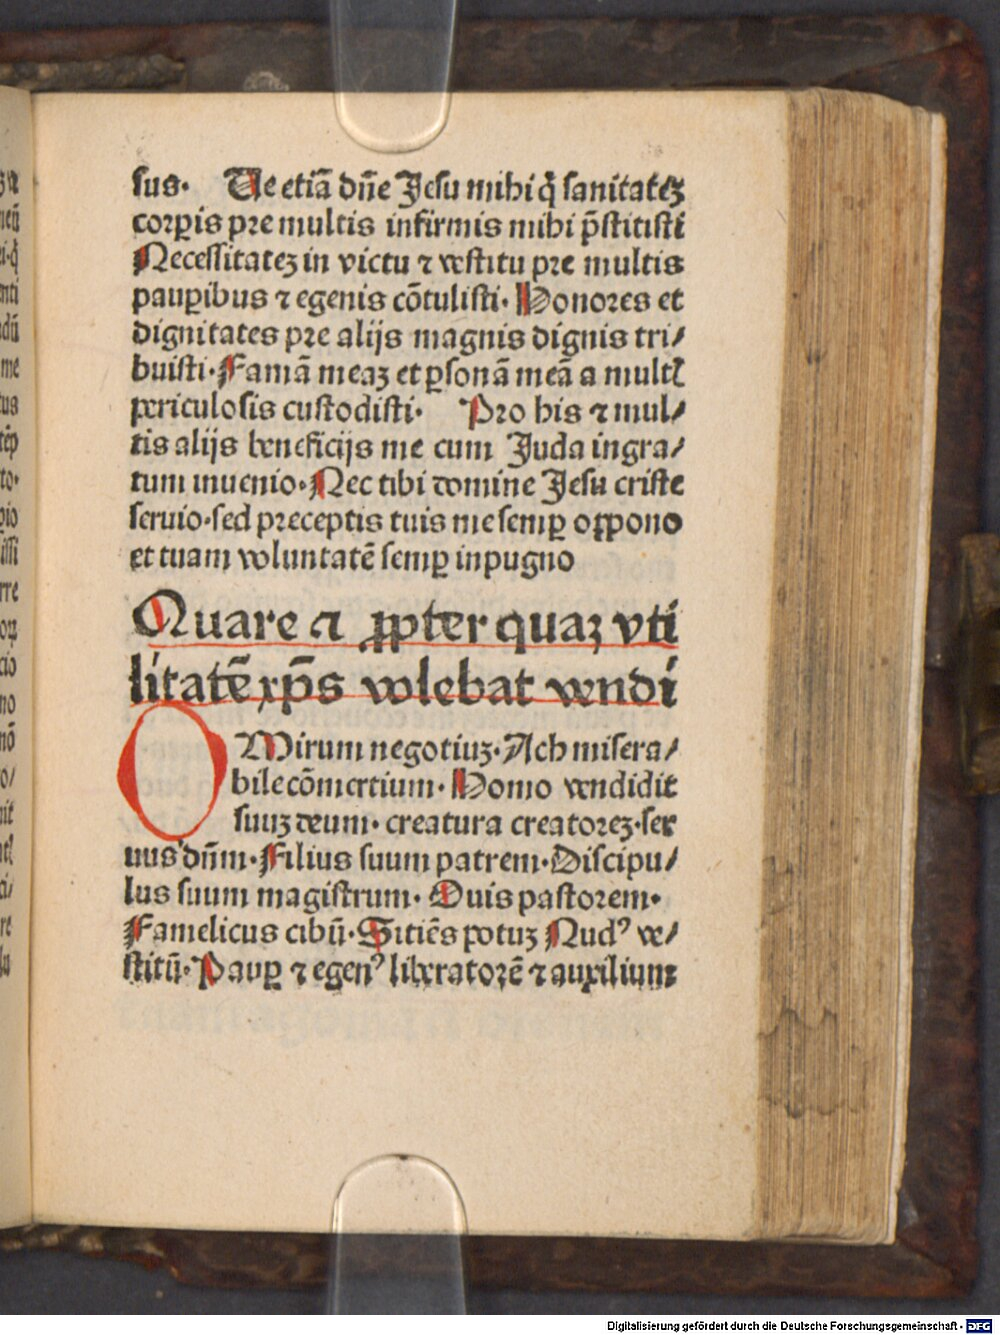 sus. Ue etiā dn̄e Jesu mihi q̄ sanitatēʒ
corꝑis pre multis infirmis mihi p̄stitisti
Necessitateʒ in victu ⁊ vestitu pre multis
pauꝑibus ⁊ egenis cōtulisti. Honores et
dignitates pre alijs magnis dignis tri/
buisti. Famā meaʒ et ꝑsonā meā a multꝭ
periculosis custodisti. Pro his ⁊ mul/
tis alijs beneficijs me cum Juda ingra/
tum inuenio. Nec tibi domine Jesu criste
seruio. sed preceptis tuis me semꝑ oppono
et tuam voluntatē semꝑ inpugno
Quare ⁊ ꝓpter quaʒ vti
litatē xp̄s volebat vendi
O Mirum negotiuʒ. Ach misera/
bile cōmertium. Homo vendidit
suuʒ deum. creatura creatoreʒ. ser
uus dn̄m. Filius suum patrem. Discipu/
lus suum magistrum. Ouis pastorem.
Famelicus cibū. Sitiēs potuʒ Nudꝰ ve/
stitū. Pauꝑ ⁊ egenꝰ liberatorē ⁊ auxilium
Digitalisierung gefördert durch die Deutsche Forschungsgemeinschaft - DFG